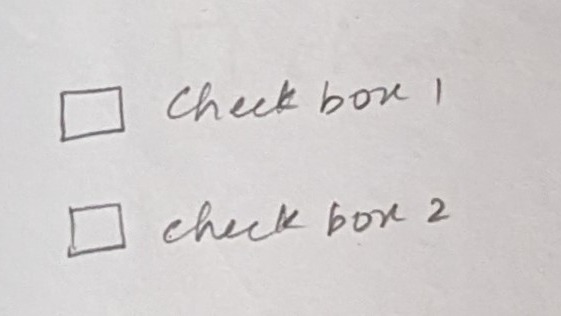 ☐ Check box 1
☐ check box 2